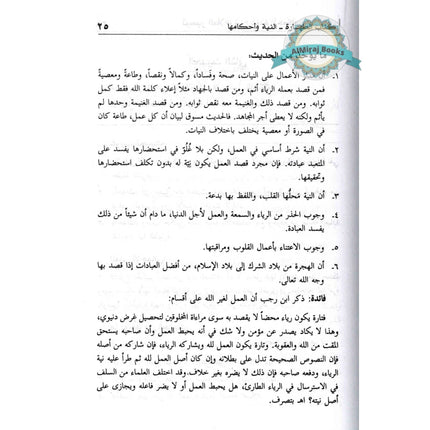 كتاب الطهارة - النية وأحكامها ٢٥
AlMiraj Books
ما يؤخذ من الحديث:
١. أن مدار الأعمال على النيات، صحة وفساداً، وكمالاً ونقصاً، وطاعة ومعصية
فمن قصد بعمله الرياء أثم، ومن قصد بالجهاد مثلاً إعلاء كلمة الله فقط كمل
ثوابه. ومن قصد ذلك والغنيمة معه نقص ثوابه. ومن قصد الغنيمة وحدها لم
يأثم ولكنه لا يعطى أجر المجاهد. فالحديث مسوق لبيان أن كل عمل، طاعة كان
في الصورة أو معصية يختلف باختلاف النيات.
٢. أن النية شرط أساسي في العمل، ولكن بلا غُلُوّ في استحضارها يفسد على
المتعبد عبادته. فإن مجرد قصد العمل يكون نِيَّة له بدون تكلف استحضارها
وتحقيقها.
٣. أن النية مَحلُّها القلب، واللفظ بها بدعة.
٤. وجوب الحذر من الرياء والسمعة والعمل لأجل الدنيا، ما دام أن شيئاً من ذلك
يفسد العبادة.
٥. وجوب الاعتناء بأعمال القلوب ومراقبتها.
٦. أن الهجرة من بلاد الشرك إلى بلاد الإسلام، من أفضل العبادات إذا قصد بها
وجه الله تعالى.
فائدة: ذكر ابن رجب أن العمل لغير الله على أقسام:
فتارة يكون رياء محضاً لا يقصد به سوى مراءاة المخلوقين لتحصيل غرض دنيوي،
وهذا لا يكاد يصدر عن مؤمن ولا شك في أنه يحبط العمل وأن صاحبه يستحق
المقت من الله والعقوبة. وتارة يكون العمل لله ويشاركه الرياء، فإن شاركه من أصله
فإن النصوص الصحيحة تدل على بطلانه وإن كان أصل العمل لله ثم طرأ عليه نية
الرياء، ودفعه صاحبه فإن ذلك لا يضره بغير خلاف وقد اختلف العلماء من السلف
في الاسترسال في الرياء الطارئ، هل يحبط العمل أو لا يضر فاعله ويجازى على
أصل نيته؟ اهـ بتصرف.